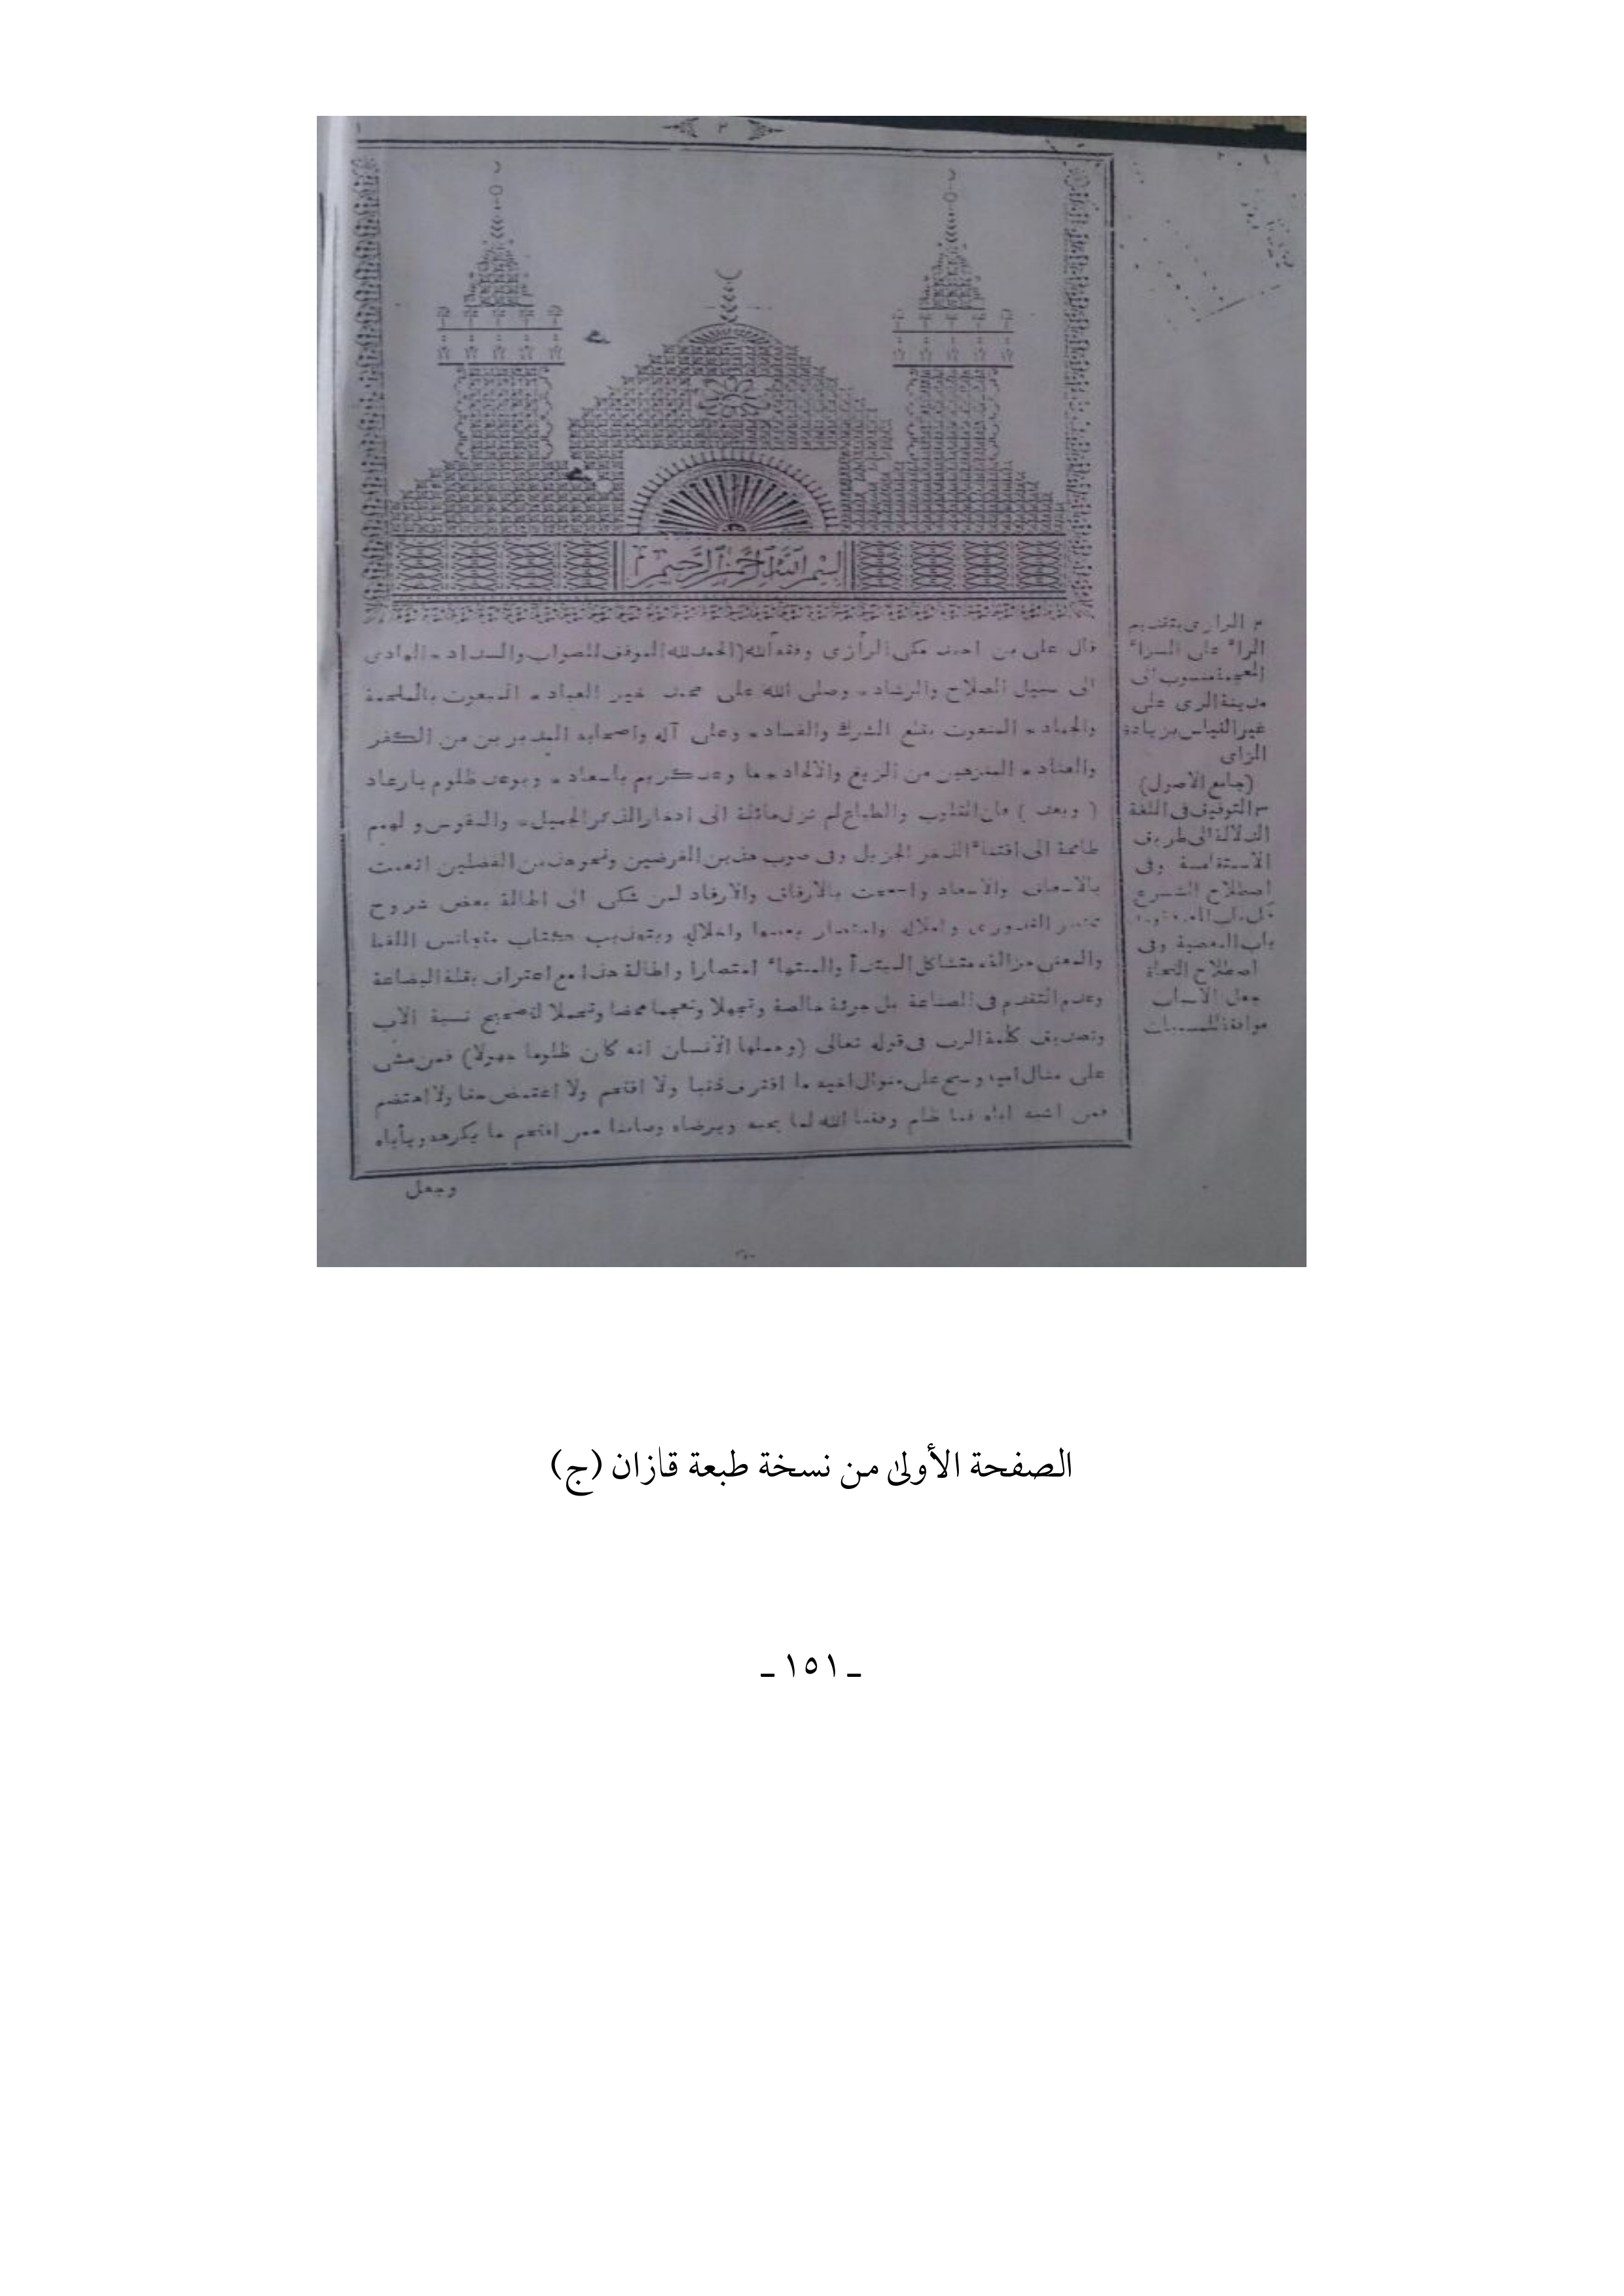 ٢
بسم الله الرحمن الرحيم
قال على بن احمد مكى الرازى وفقه الله (الحمد لله الموفق للصواب والسداد * الهادى
الى سبيل الصلاح والرشاد * وصلى الله على محمد خير العباد * المبعوث بالملحمة
والجهاد * المنعوت بقمع الشرك والفساد * وعلى آله واصحابه من الكفر
والعناد * المنزهين من الزيغ والالحاد * ما وعد كريم باسعاد * ويوعد ظلوم بارعاد
( وبعد ) فان القلوب والطباع لم تزل مائلة الى ادخار الذكر الجميل * والنفوس و
طامحة الى اقتناء الذخر الجزيل وفى صوب هذين الغرضين ونحو هذين الفضلين
بالاسعاف والاسعاد و بالارفاق والارفاد لمن شكى الى اطالة بعض شروح
مختصر القدورى واملاله واختصار بعضها واخلاله وبتهذيب كتاب متجانس اللفظ
والمعنى متشاكل المبتدأ والمنتهاء اختصارا واطالة هذا مع اعتراف بقلة البضاعة
وعدم التقدم فى الصناعة بل جرئة خالصة وتجهلا محضا وتحملا لتصحيح نسبة الاب
وتصديق كلمة الرب فى قوله تعالى (وحملها الانسان انه كان ظلوما جهولا) فمن مشى
على منوال ابيه ما اقترف ذنبا ولا اقتحم ولا حقا ولا اهتضم
فمن اشبه اباه فما ظلم وفقنا الله لما يحبه ويرضاه وصاننا ممن اقتحم ما يكرهه ويأباه
وجعل
م الرازى بتقديم
الراء على الزاء
المعجمة منسوب الى
مدينة الرى على
غير القياس بزيادة
الزاى
(جامع الاصول)
م التوفيق فى اللغة
الدلالة الى طريق
الاستقامة وفى
اصطلاح الشرع
باب المعصية وفى
اصطلاح النحاة
جعل الاسباب
موافقة للمسببات
الصفحة الأولىٰ من نسخة طبعة قازان (ج)
ـ ١٥١ ـ